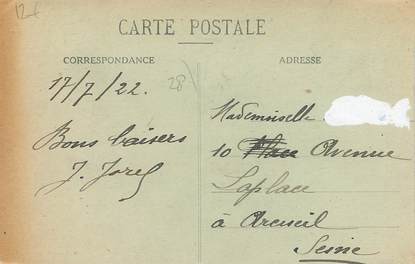 12f
CARTE POSTALE
CORRESPONDANCE
ADRESSE
17/7/22.
28
Mademoiselle
Bons baisers
10 Avenue
J. Jorel
Laplace
à Arcueil
Seine